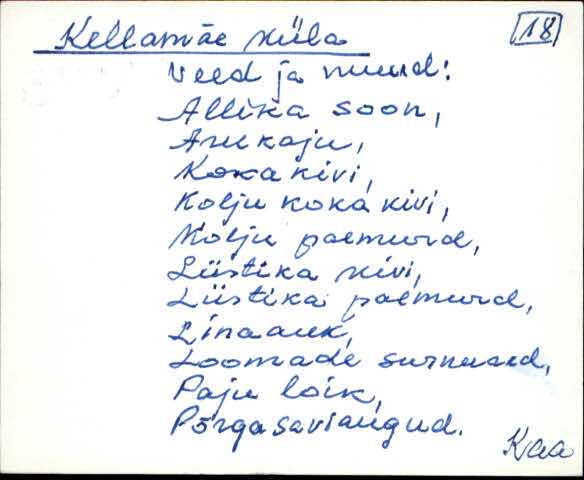 Kellamäe küla
18
Veed ja muud:
Allika soon,
Aru kaju,
Koka kivi,
Kolju koka kivi,
Kolju paemurd,
Liistika kivi,
Liistika paemurd,
Linaauk,
Loomade surnuaed,
Paju loik,
Põrga saviaugud.
Kaa